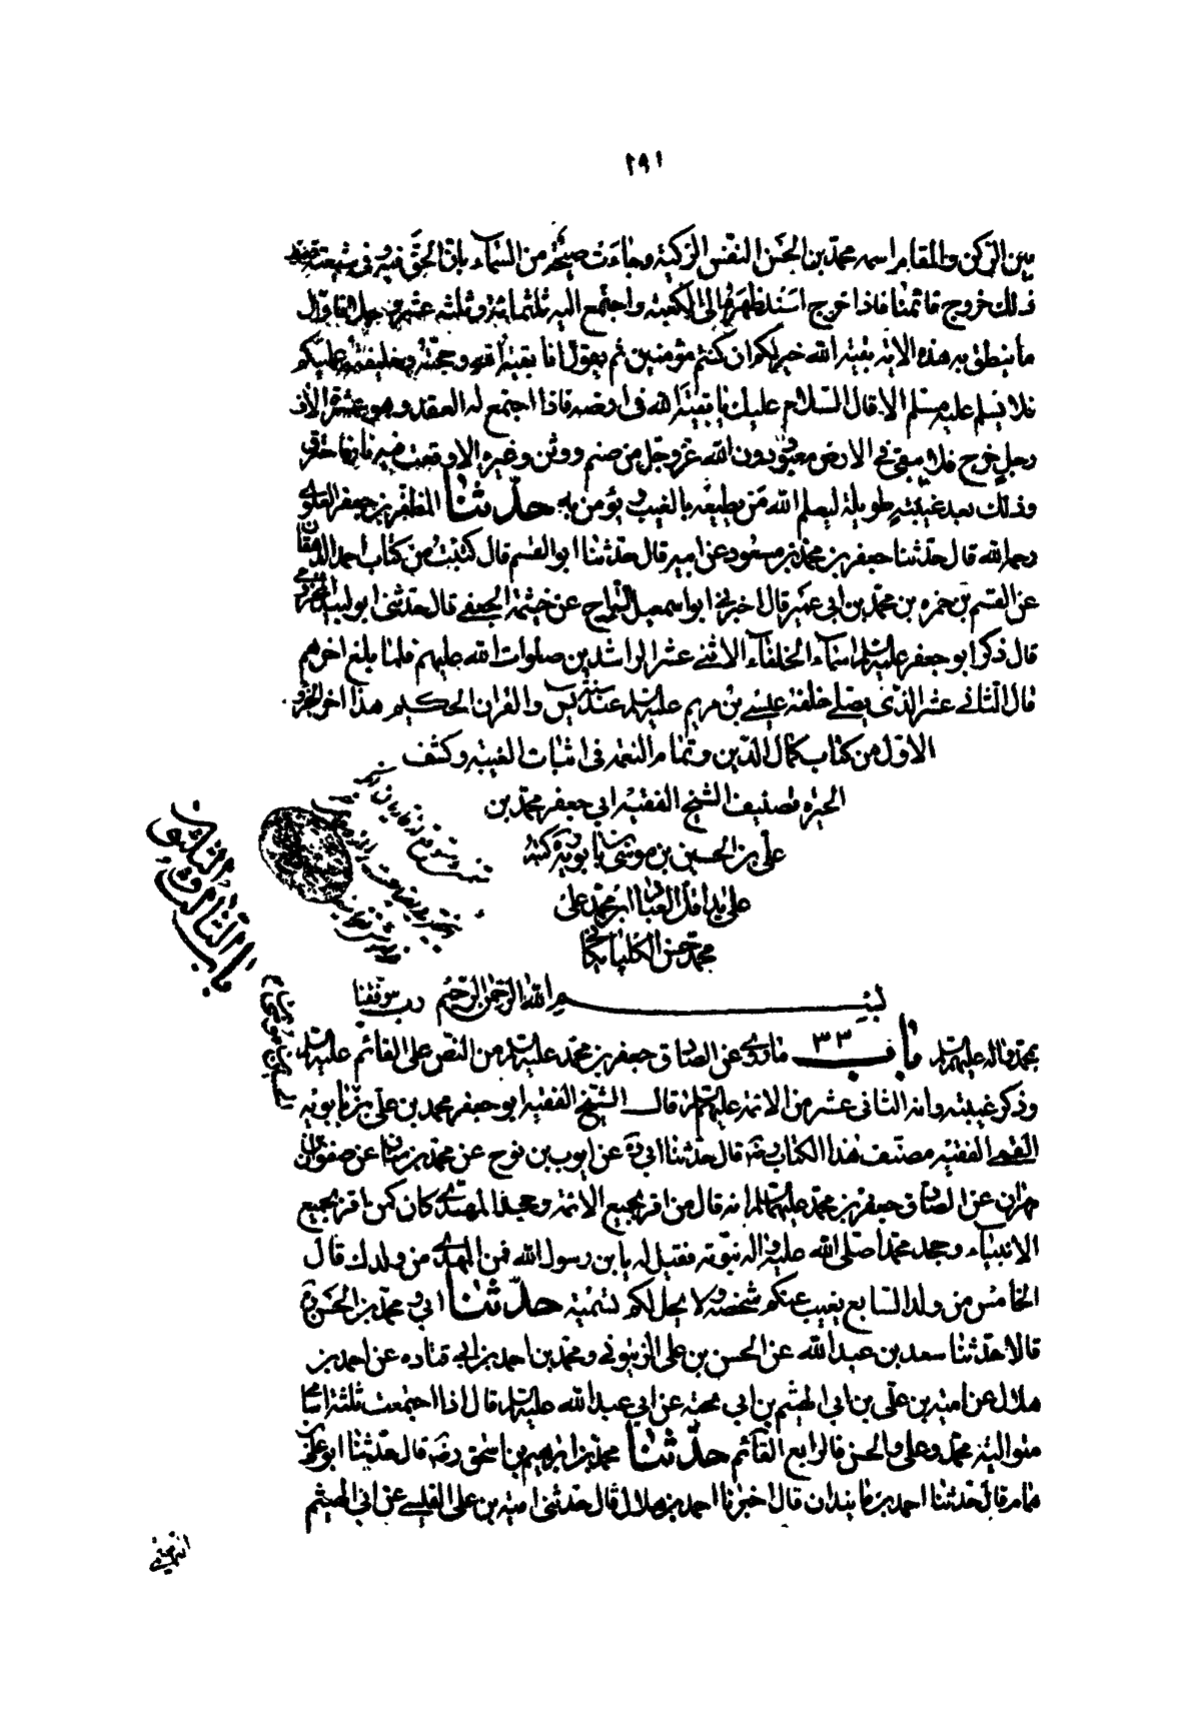 ٢٩١
بين الركن والمقام اسمه محمد بن الحسن النفس الزكية وجاءت صيحة من السماء بان الحق فيه وفى شيعته فعند
ذلك خروج قائمنا فاذا خرج اسند ظهره الى الكعبة واجتمع اليه ثلثمائة وثلثة عشر رجلا فاول
ما ينطق به هذه الاية بقية الله خير لكم ان كنتم مؤمنين ثم يقول انا بقية الله وحجته وخليفته عليكم
فلا يسلم عليه مسلم الا قال السلام عليك يا بقية الله فى ارضه فاذا اجتمع له العقد وهو عشرة الاف
رجل خرج فلا يبقى فى الارض معبود دون الله عز وجل من صنم ووثن وغيره الا وقعت فيه نار فاحترق
وذلك بعد غيبة طويلة ليعلم الله من يطيعه بالغيب ويؤمن به حدثنا المظفر بن جعفر العلوى
رحمه الله قال حدثنا جعفر بن محمد بن مسعود عن ابيه قال حدثنا ابو القسم قال كتبت من كتاب احمد الدهقان
عن القسم بن حمزه بن محمد بن ابى عمير قال اخبرنى ابو اسمعيل السراج عن خيثمة الجعفى قال حدثنى ابو لبيد المخزومى
قال ذكر ابو جعفر عليه السلم اسماء الخلفاء الاثنى عشر الراشدين صلوات الله عليهم فلما بلغ اخرهم
قال الثانى عشر الذى يصلى خلفه عيسى بن مريم عليه السلم عند سنة يس والقران الحكيم هذا اخر الجزو
الاول من كتاب كمال الدين وتمام النعمه فى اثبات الغيبه وكشف
الحيره تصنيف الشيخ الفقيه ابى جعفر محمد بن
على بن الحسين بن موسى بن بابويه كتبه
على يد اقل العباد ابن محمد على
محمد حسن الكلپايكانى
باب الثالث والثلثون
بسم الله الرحمن الرحيم رب وفقنا
باب ٣٣ ما روى عن الصادق جعفر بن محمد عليه السلم من النص على القائم عليه السلم
وذكر غيبته وانه الثانى عشر من الائمة عليهم السلم قال الشيخ الفقيه ابو جعفر محمد بن على بن بابويه
القمى الفقيه مصنف هذا الكتاب رضه قال حدثنا ابى ره عن ايوب بن نوح عن محمد بن سنان عن صفوان بن
مهران عن الصادق جعفر بن محمد عليهما السلم انه قال من اقر بجميع الائمة وجحد المهدى كان كمن اقر بجميع
الانبياء وجحد محمدا صلى الله عليه واله نبوته فقيل له يا بن رسول الله فمن المهدى من ولدك قال
الخامس من ولد السابع يغيب عنكم شخصه ولا يحل لكم تسميته حدثنا ابى ومحمد بن الحسن ره
قالا حدثنا سعد بن عبد الله عن الحسن بن على الزيتونى ومحمد بن احمد بن ابى قتاده عن احمد بن
هلال عن امية بن على بن ابى الهيثم بن ابى حبة عن ابى عبد الله عليه السلم قال اذا اجتمعت ثلثة اسامى
متوالية محمد وعلى والحسن فالرابع القائم حدثنا محمد بن ابراهيم بن اسحق رضه قال حدثنا ابو على محمد بن
همام قال حدثنا احمد بن مابنداذ قال اخبرنا احمد بن هلال قال حدثنى امية بن على القيسى عن ابى الهيثم
التميمى